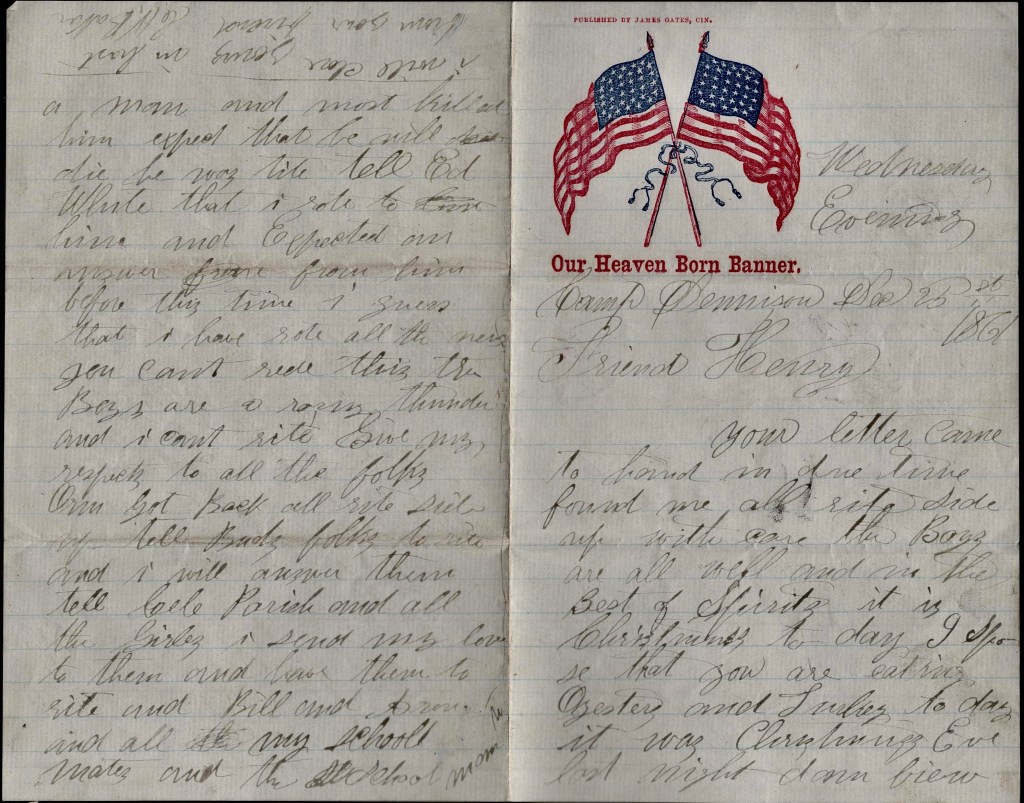 PUBLISHED BY JAMES GATES, CIN.
Our Heaven Born Banner.
Wednesday
Evening
Camp Dennison Dec 25st
1861
Friend Henry
your letter came
to hand in due time
found me all rite side
up with care the Boys
are all well and in the
Best of Spirits it is
Christmas to day I spo
se that you are eating
Oysters and to day
it was Christmas Eve
last night dam
a man and most kill
him expect that he will
die he was tite tell Ed
White that i rote to him
him and Expected an
answer from from him
before this time i guess
that i have rote all the news
you cant rede this the
Boys are a thunder
and i cant rite Give my
respects to all the folks
Orm got Back all rite side
up tell Buds folks to rite
and i will answer them
tell Cole Parish and all
the Girls i send my love
to them and have them to
rite and Bill and
and all the my schooll
mates and the school mom
i will close in hast
From your friend